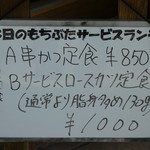 本日のもちぶたサービスラン
A串かつ定食￥850
Bサービスロースカツ定食
(通常より脂身多め/130g)
￥1000